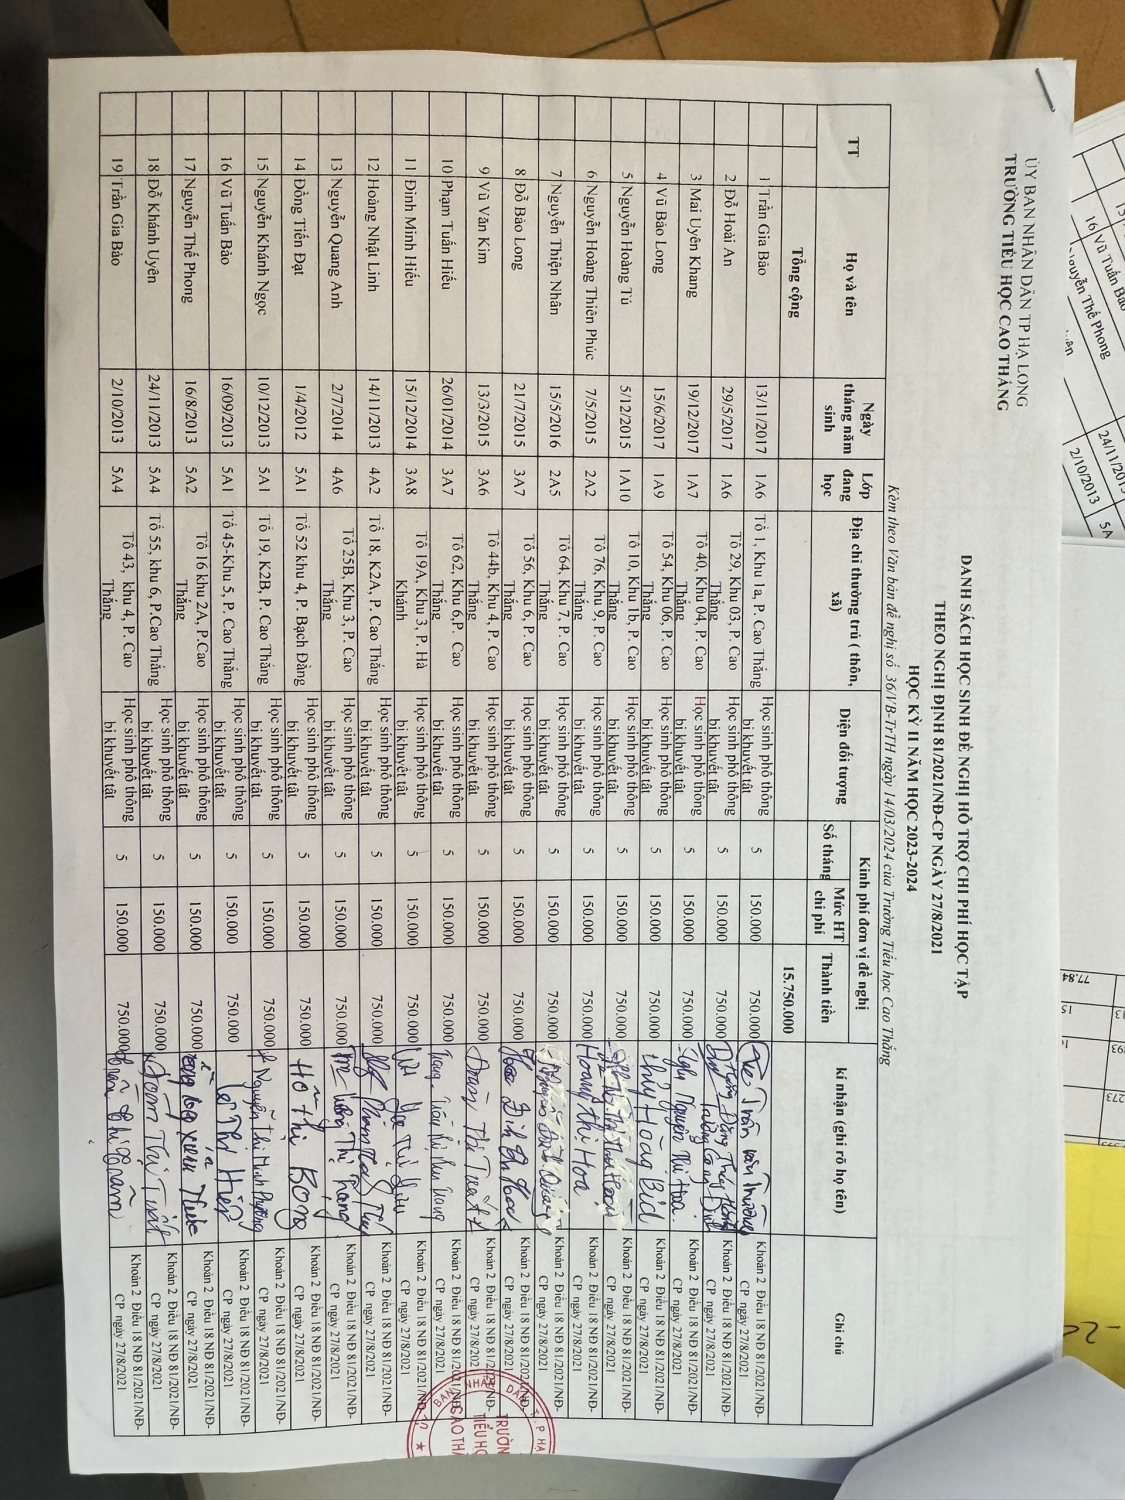 ỦY BAN NHÂN DÂN TP HẠ LONG
TRƯỜNG TIỂU HỌC CAO THẮNG
DANH SÁCH HỌC SINH ĐỀ NGHỊ HỖ TRỢ CHI PHÍ HỌC TẬP
THEO NGHỊ ĐỊNH 81/2021/NĐ-CP NGÀY 27/8/2021
HỌC KỲ II NĂM HỌC 2023-2024
Kèm theo Văn bản đề nghị số 36/VB-TrTH ngày 14/03/2024 của Trường Tiểu học Cao Thắng
TT Họ và tên Ngày tháng năm sinh Lớp đang học Địa chỉ thường trú ( thôn, xã) Diện đối tượng Kinh phí đơn vị đề nghị kí nhận (ghi rõ họ tên) Ghi chú
Số tháng Mức HT chi phí Thành tiền
Tổng cộng 15.750.000
1 Trần Gia Bảo 13/11/2017 1A6 Tổ 1, Khu 1a, P. Cao Thắng Học sinh phổ thông bị khuyết tật 5 150.000 750.000 Trần văn Khoản 2 Điều 18 NĐ 81/2021/NĐ-CP ngày 27/8/2021
2 Đỗ Hoài An 29/5/2017 1A6 Tổ 29, Khu 03, P. Cao Thắng Học sinh phổ thông bị khuyết tật 5 150.000 750.000 Khoản 2 Điều 18 NĐ 81/2021/NĐ-CP ngày 27/8/2021
3 Mai Uyên Khang 19/12/2017 1A7 Tổ 40, Khu 04, P. Cao Thắng Học sinh phổ thông bị khuyết tật 5 150.000 750.000 Nguyễn Thị Hoa Khoản 2 Điều 18 NĐ 81/2021/NĐ-CP ngày 27/8/2021
4 Vũ Bảo Long 15/6/2017 1A9 Tổ 54, Khu 06, P. Cao Thắng Học sinh phổ thông bị khuyết tật 5 150.000 750.000 Khoản 2 Điều 18 NĐ 81/2021/NĐ-CP ngày 27/8/2021
5 Nguyễn Hoàng Tú 5/12/2015 1A10 Tổ 10, Khu 1b, P. Cao Thắng Học sinh phổ thông bị khuyết tật 5 150.000 750.000 Khoản 2 Điều 18 NĐ 81/2021/NĐ-CP ngày 27/8/2021
6 Nguyễn Hoàng Thiên Phúc 7/5/2015 2A2 Tổ 76, Khu 9, P. Cao Thắng Học sinh phổ thông bị khuyết tật 5 150.000 750.000 Hoàng Thị Hoa Khoản 2 Điều 18 NĐ 81/2021/NĐ-CP ngày 27/8/2021
7 Nguyễn Thiện Nhân 15/5/2016 2A5 Tổ 64, Khu 7, P. Cao Thắng Học sinh phổ thông bị khuyết tật 5 150.000 750.000 Khoản 2 Điều 18 NĐ 81/2021/NĐ-CP ngày 27/8/2021
8 Đỗ Bảo Long 21/7/2015 3A7 Tổ 56, Khu 6, P. Cao Thắng Học sinh phổ thông bị khuyết tật 5 150.000 750.000 Khoản 2 Điều 18 NĐ 81/2021/NĐ-CP ngày 27/8/2021
9 Vũ Văn Kim 13/3/2015 3A6 Tổ 44b, Khu 4, P. Cao Thắng Học sinh phổ thông bị khuyết tật 5 150.000 750.000 Khoản 2 Điều 18 NĐ 81/2021/NĐ-CP ngày 27/8/2021
10 Phạm Tuấn Hiếu 26/01/2014 3A7 Tổ 62, Khu 6,P. Cao Thắng Học sinh phổ thông bị khuyết tật 5 150.000 750.000 Khoản 2 Điều 18 NĐ 81/2021/NĐ-CP ngày 27/8/2021
11 Đinh Minh Hiếu 15/12/2014 3A8 Tổ 19A, Khu 3, P. Hà Khánh Học sinh phổ thông bị khuyết tật 5 150.000 750.000 Khoản 2 Điều 18 NĐ 81/2021/NĐ-CP ngày 27/8/2021
12 Hoàng Nhật Linh 14/11/2013 4A2 Tổ 18, K2A, P. Cao Thắng Học sinh phổ thông bị khuyết tật 5 150.000 750.000 Khoản 2 Điều 18 NĐ 81/2021/NĐ-CP ngày 27/8/2021
13 Nguyễn Quang Anh 2/7/2014 4A6 Tổ 25B, Khu 3, P. Cao Thắng Học sinh phổ thông bị khuyết tật 5 150.000 750.000 Khoản 2 Điều 18 NĐ 81/2021/NĐ-CP ngày 27/8/2021
14 Đồng Tiến Đạt 1/4/2012 5A1 Tổ 52 khu 4, P. Bạch Đằng Học sinh phổ thông bị khuyết tật 5 150.000 750.000 Khoản 2 Điều 18 NĐ 81/2021/NĐ-CP ngày 27/8/2021
15 Nguyễn Khánh Ngọc 10/12/2013 5A1 Tổ 19, K2B, P. Cao Thắng Học sinh phổ thông bị khuyết tật 5 150.000 750.000 Nguyễn Thị Minh Phượng Khoản 2 Điều 18 NĐ 81/2021/NĐ-CP ngày 27/8/2021
16 Vũ Tuấn Bảo 16/09/2013 5A1 Tổ 45-Khu 5, P. Cao Thắng Học sinh phổ thông bị khuyết tật 5 150.000 750.000 Lê Thị Hiền Khoản 2 Điều 18 NĐ 81/2021/NĐ-CP ngày 27/8/2021
17 Nguyễn Thế Phong 16/8/2013 5A2 Tổ 16 khu 2A, P.Cao Thắng Học sinh phổ thông bị khuyết tật 5 150.000 750.000 Khoản 2 Điều 18 NĐ 81/2021/NĐ-CP ngày 27/8/2021
18 Đỗ Khánh Uyên 24/11/2013 5A4 Tổ 55, khu 6, P.Cao Thắng Học sinh phổ thông bị khuyết tật 5 150.000 750.000 Khoản 2 Điều 18 NĐ 81/2021/NĐ-CP ngày 27/8/2021
19 Trần Gia Bảo 2/10/2013 5A4 Tổ 43, khu 4, P. Cao Thắng Học sinh phổ thông bị khuyết tật 5 150.000 750.000 Khoản 2 Điều 18 NĐ 81/2021/NĐ-CP ngày 27/8/2021
16 Vũ Tuấn Bảo
Nguyễn Thế Phong
2/10/2013
77.84